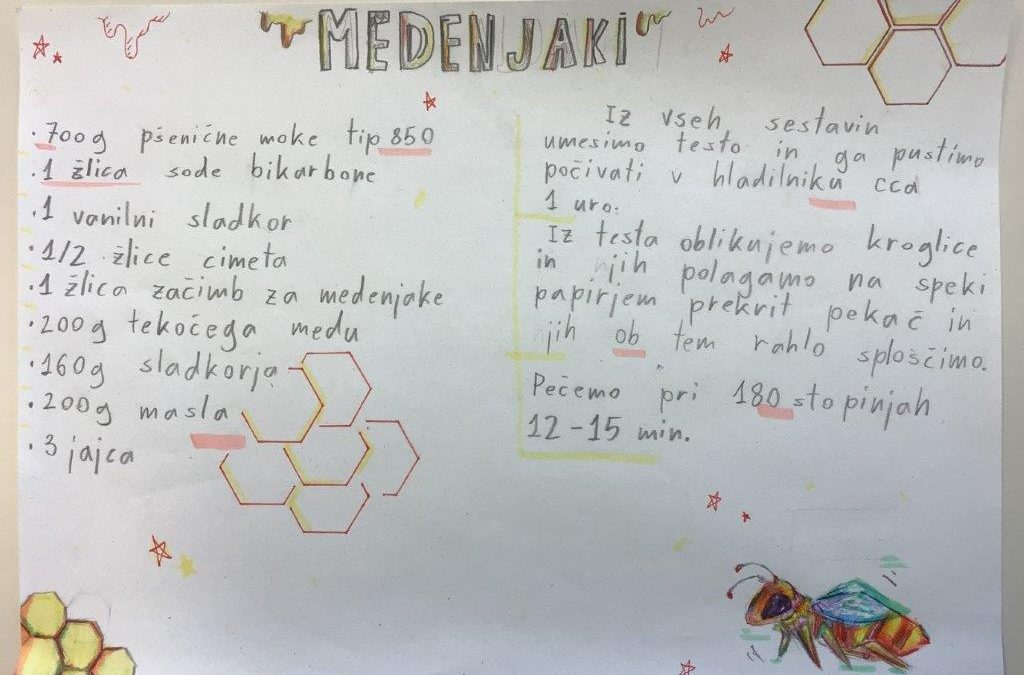 MEDENJAKI
• 700g pšenične moke tip 850
• 1 žlica sode bikarbone
• 1 vanilni sladkor
• 1/2 žlice cimeta
• 1 žlica začimb za medenjake
• 200g tekočega medu
• 160g sladkorja
• 200g masla
• 3 jajca
Iz vseh sestavin
umesimo testo in ga pustimo
počivati v hladilniku cca
1 uro.
Iz testa oblikujemo kroglice
in njih polagamo na speki
papirjem prekrit pekač in
njih ob tem rahlo sploščimo.
Pečemo pri 180 stopinjah
12-15 min.